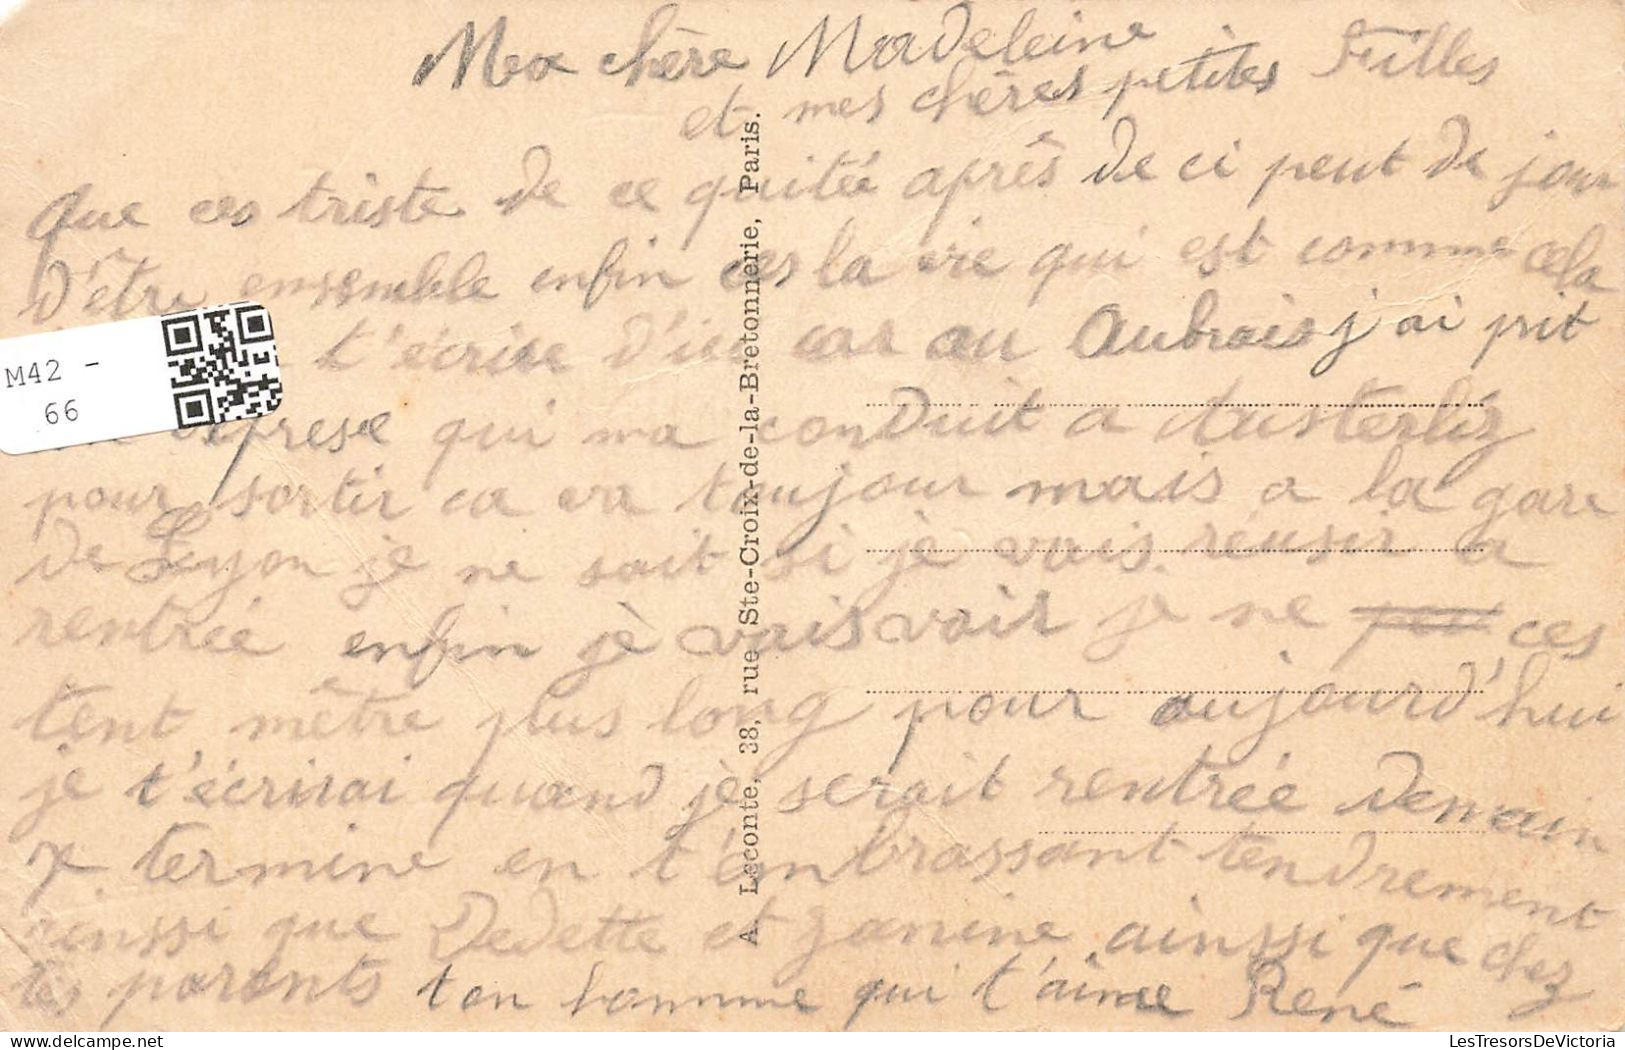 Ma chère Madeleine
et mes chères petites Filles
que ces triste de ce quitée après de ci peut de jour
d'être ensemble enfin ces la vie qui est comme cela
t'écrise d'ici car au Aubrais j'ai prit
exprese qui ma conduit a Austerliz
pour sortir ca va toujour mais a la gare
de Leyon je ne sait si je vais réusir a
rentrée enfin jè vais voir je ne peu ces
tent mêtre plus long pour aujourd'hui
je t'écrirai quand jè serait rentrée Demain
je termine en t'embrassant tendrement
ainssi que Dedette et Janine ainssi que chez
tes parents ton homme qui t'aime René
A. Leconte, 38, rue Ste-Croix-de-la-Bretonnerie, Paris.
M42 -
66
LesTresorsDeVictoria